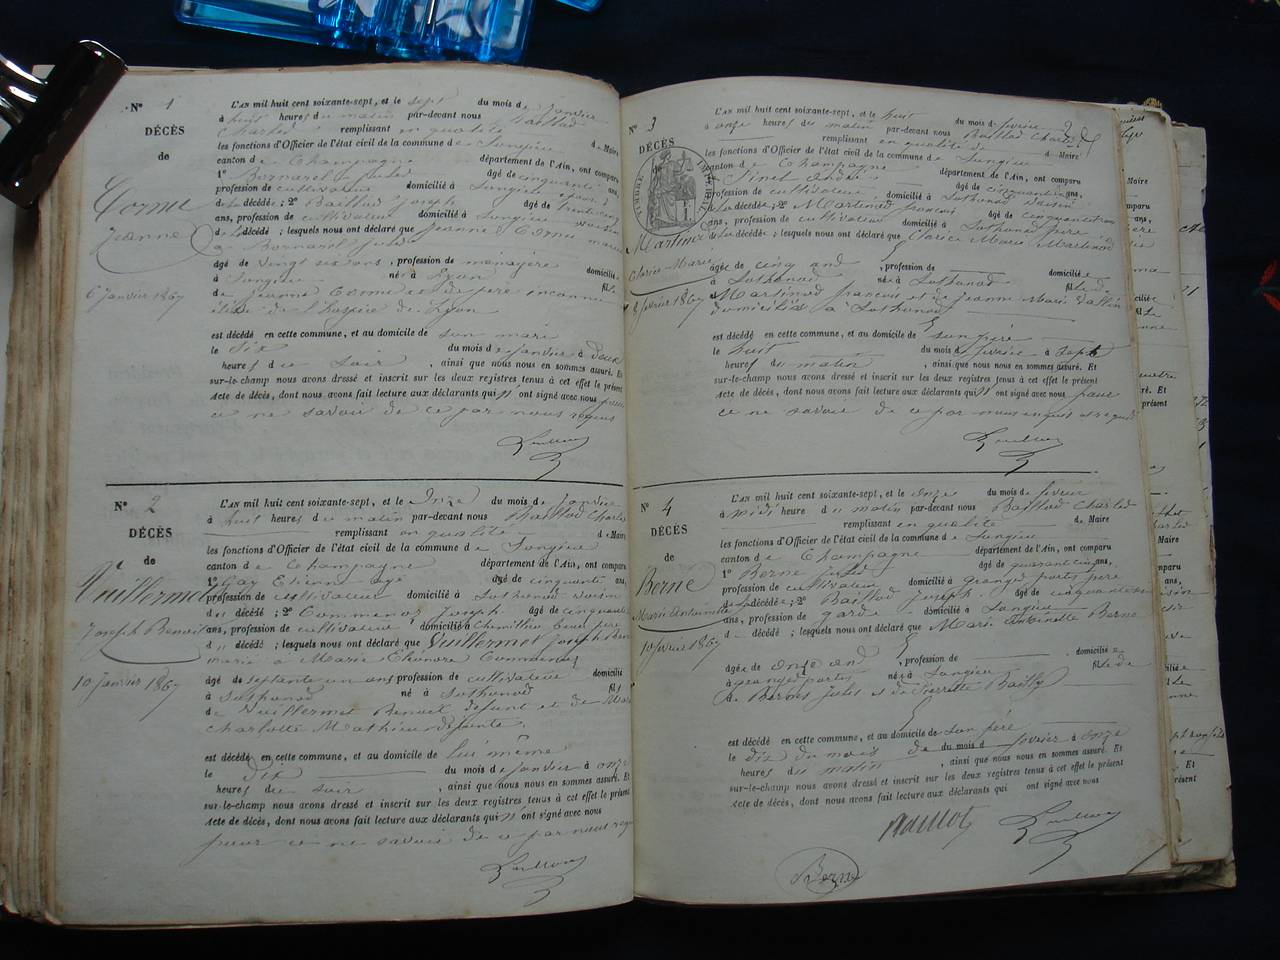 N° 1
DÉCÈS
de
Cornu
Jeanne
6 Janvier 1867
L'AN mil huit cent soixante-sept, et le sept du mois de janvier
à huit heures du matin par-devant nous Baillod
Charles remplissant en qualité de Maire
les fonctions d'Officier de l'état civil de la commune de Songieu
canton de Champagne département de l'Ain, ont comparu
1° Bornarel Jules âgé de cinquante ans,
profession de cultivateur domicilié à Songieu
décédée; 2° Baillod Joseph âgé de trente cinq
ans, profession de cultivateur domicilié à Songieu voisin
de la décédée; lesquels nous ont déclaré que Jeanne Cornu mariée
à Bornarel Jules
âgée de vingt six ans, profession de ménagère domiciliée
à Songieu née à Lyon fille
de Jeanne Cornu et de père inconnu
élève de l'hospice de Lyon
est décédé en cette commune, et au domicile de son mari
le six du mois de janvier à deux
heures du soir, ainsi que nous nous en sommes assuré. Et
sur-le-champ nous avons dressé et inscrit sur les deux registres tenus à cet effet le présent
Acte de décès, dont nous avons fait lecture aux déclarants qui n'ont signé avec nous pour
ce ne savoir de ce par nous requis
N° 2
DÉCÈS
de
Vuillermet
Joseph Benoit
10 Janvier 1867
L'AN mil huit cent soixante-sept, et le onze du mois de janvier
à huit heures du matin par-devant nous Baillod Charles
remplissant en qualité de Maire
les fonctions d'Officier de l'état civil de la commune de Songieu
canton de Champagne département de l'Ain, ont comparu
1° Gay Etienne âgé âgé de cinquante ans,
profession de cultivateur domicilié à Sothonod voisin
du décédé; 2° Joseph âgé de cinquante
ans, profession de cultivateur domicilié à Chemillieu beau père
d décédé; lesquels nous ont déclaré que Vuillermet Joseph Benoit
marié à Marie
âgé de septante un ans profession de cultivateur domicilié
à Sothonod né à Sothonod fils
de Vuillermet Benoit défunt et de Marie
Charlotte Mathieu défunte.
est décédé en cette commune, et au domicile de lui même
le dix du mois de janvier à onze
heures du soir, ainsi que nous nous en sommes assuré. Et
sur-le-champ nous avons dressé et inscrit sur les deux registres tenus à cet effet le présent
Acte de décès, dont nous avons fait lecture aux déclarants qui n'ont signé avec nous
pour ce ne savoir de ce par nous requis
N° 3
DÉCÈS
TIMBRE IMPÉRIAL
Martinod
Clarice Marie
8 février 1867
L'AN mil huit cent soixante-sept, et le huit du mois de février
à onze heures du matin par-devant nous Baillod Charles
remplissant en qualité de Maire
les fonctions d'Officier de l'état civil de la commune de Songieu
canton de Champagne département de l'Ain, ont comparu
1° Pinet André âgé de cinquante ans,
profession de cultivateur domicilié à Sothonod voisin
de la décédée; 2° Martinod françois âgé de cinquante
ans, profession de cultivateur domicilié à Sothonod père
de la décédée; lesquels nous ont déclaré que Clarice Marie Martinod
âgée de cinq ans, profession de domiciliée
à Sothonod née à Sothonod fille de
Martinod françois et de Jeanne Marie
domiciliés à Sothonod
est décédé en cette commune, et au domicile de son père
le huit du mois de février à sept
heures du matin, ainsi que nous nous en sommes assuré. Et
sur-le-champ nous avons dressé et inscrit sur les deux registres tenus à cet effet le présent
Acte de décès, dont nous avons fait lecture aux déclarants qui n'ont signé avec nous pour
ce ne savoir de ce par nous enquis et requis
N° 4
DÉCÈS
de
Berne
Marie Antoinette
10 février 1867
L'AN mil huit cent soixante-sept, et le onze du mois de février
à midi heure du matin par-devant nous Baillod Charles
remplissant en qualité de Maire
les fonctions d'Officier de l'état civil de la commune de Songieu
canton de Champagne département de l'Ain, ont comparu
1° Berne Jules âgé de quarante cinq ans,
profession de cultivateur domicilié à Granges portes père
décédée; 2° Baillod Joseph âgé de cinquante
ans, profession de garde domicilié à Songieu
d décédé; lesquels nous ont déclaré que Marie Antoinette Berne
âgée de onze ans, profession de domiciliée
à granges portes née à Songieu fille de
de Berne Jules et de Pierrette Bailly
est décédé en cette commune, et au domicile de son père
le dix du mois de du mois d février à onze
heures du matin, ainsi que nous nous en sommes assuré. Et
sur-le-champ nous avons dressé et inscrit sur les deux registres tenus à cet effet le présent
Acte de décès, dont nous avons fait lecture aux déclarants qui ont signé avec nous
Berne